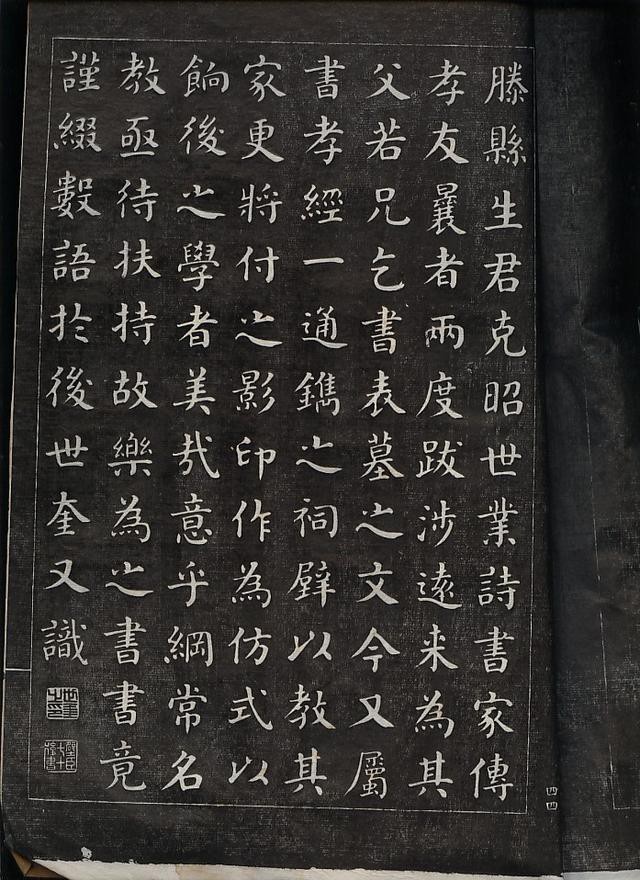 滕縣生君克昭世業詩書家傳
孝友曩者兩度跋涉遠来為其
父若兄乞書表墓之文今又屬
書孝經一通鐫之祠壁以教其
家更將付之影印作為仿式以
餉後之學者美哉意乎綱常名
教亟待扶持故樂為之書書竟
謹綴數語於後世奎又識
四四